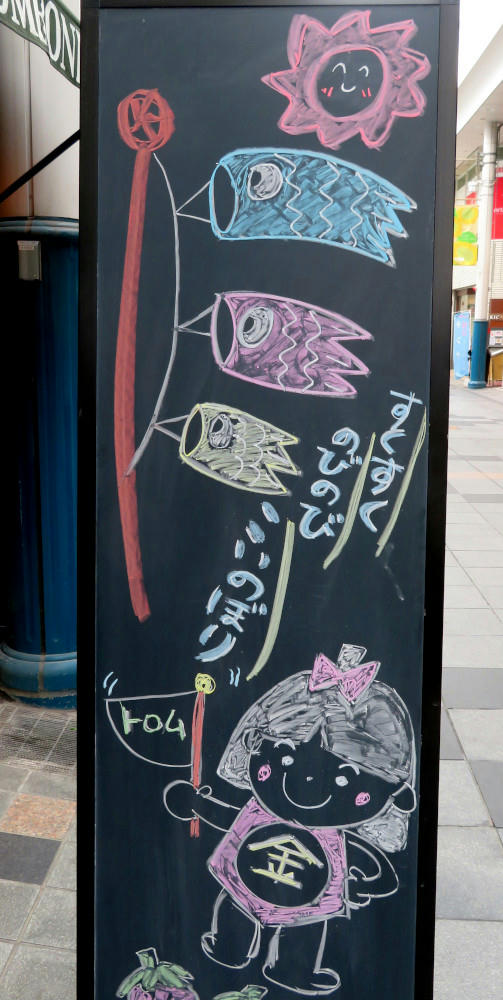 すくすく
のびのび
こいのぼり
トロム
金